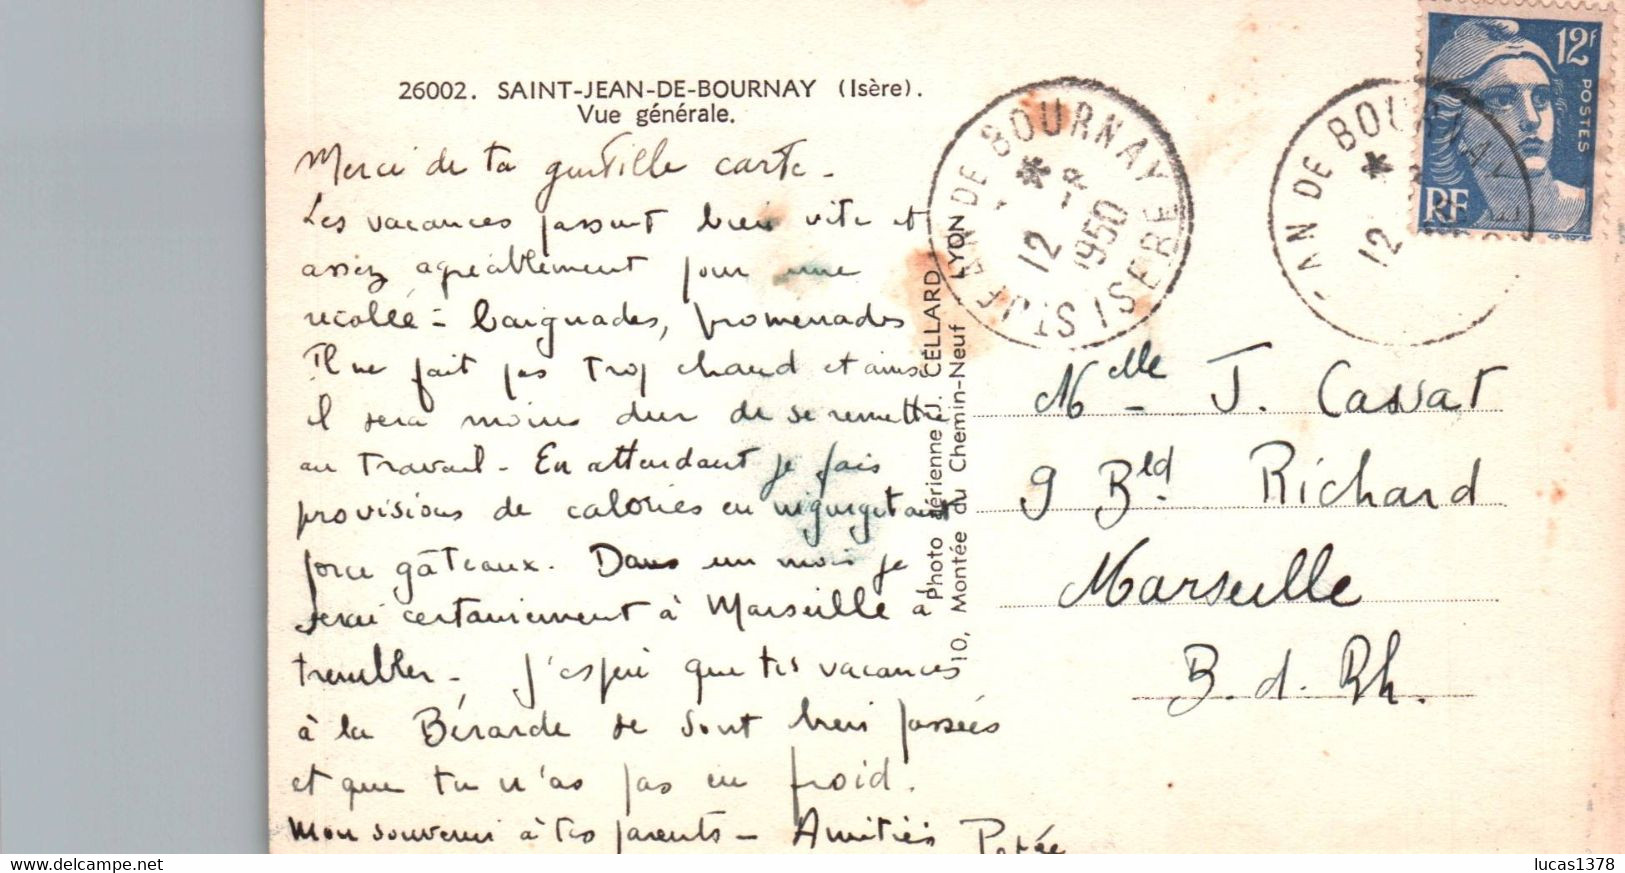 26002. SAINT-JEAN-DE-BOURNAY (Isère).
Vue générale.
Merci de ta gentille carte -
Les vacances passent bien vite et
assez agréablement pour une
recalée - baignades, promenades
Il ne fait pas trop chaud et ainsi
il sera moins dur de se remettre
au travail - En attendant je fais
provisions de calories en ingurgitant
force gâteaux. Dans un mois je
serai certainement à Marseille à
trembler - J'espère que tes vacances
à la Bérarde se sont bien passées
et que tu n'as pas eu froid.
Mon souvenir à tes parents - Amitiés
Photo aérienne J. CELLARD
10, Montée du Chemin-Neuf LYON
ST JEAN DE BOURNAY ISERE
12
1950
AN DE BOURNAY
12
12F
POSTES
RF
Melle J. Cassat
9 Bld Richard
Marseille
B. d. Rh.
delcampe.net
lucas1378